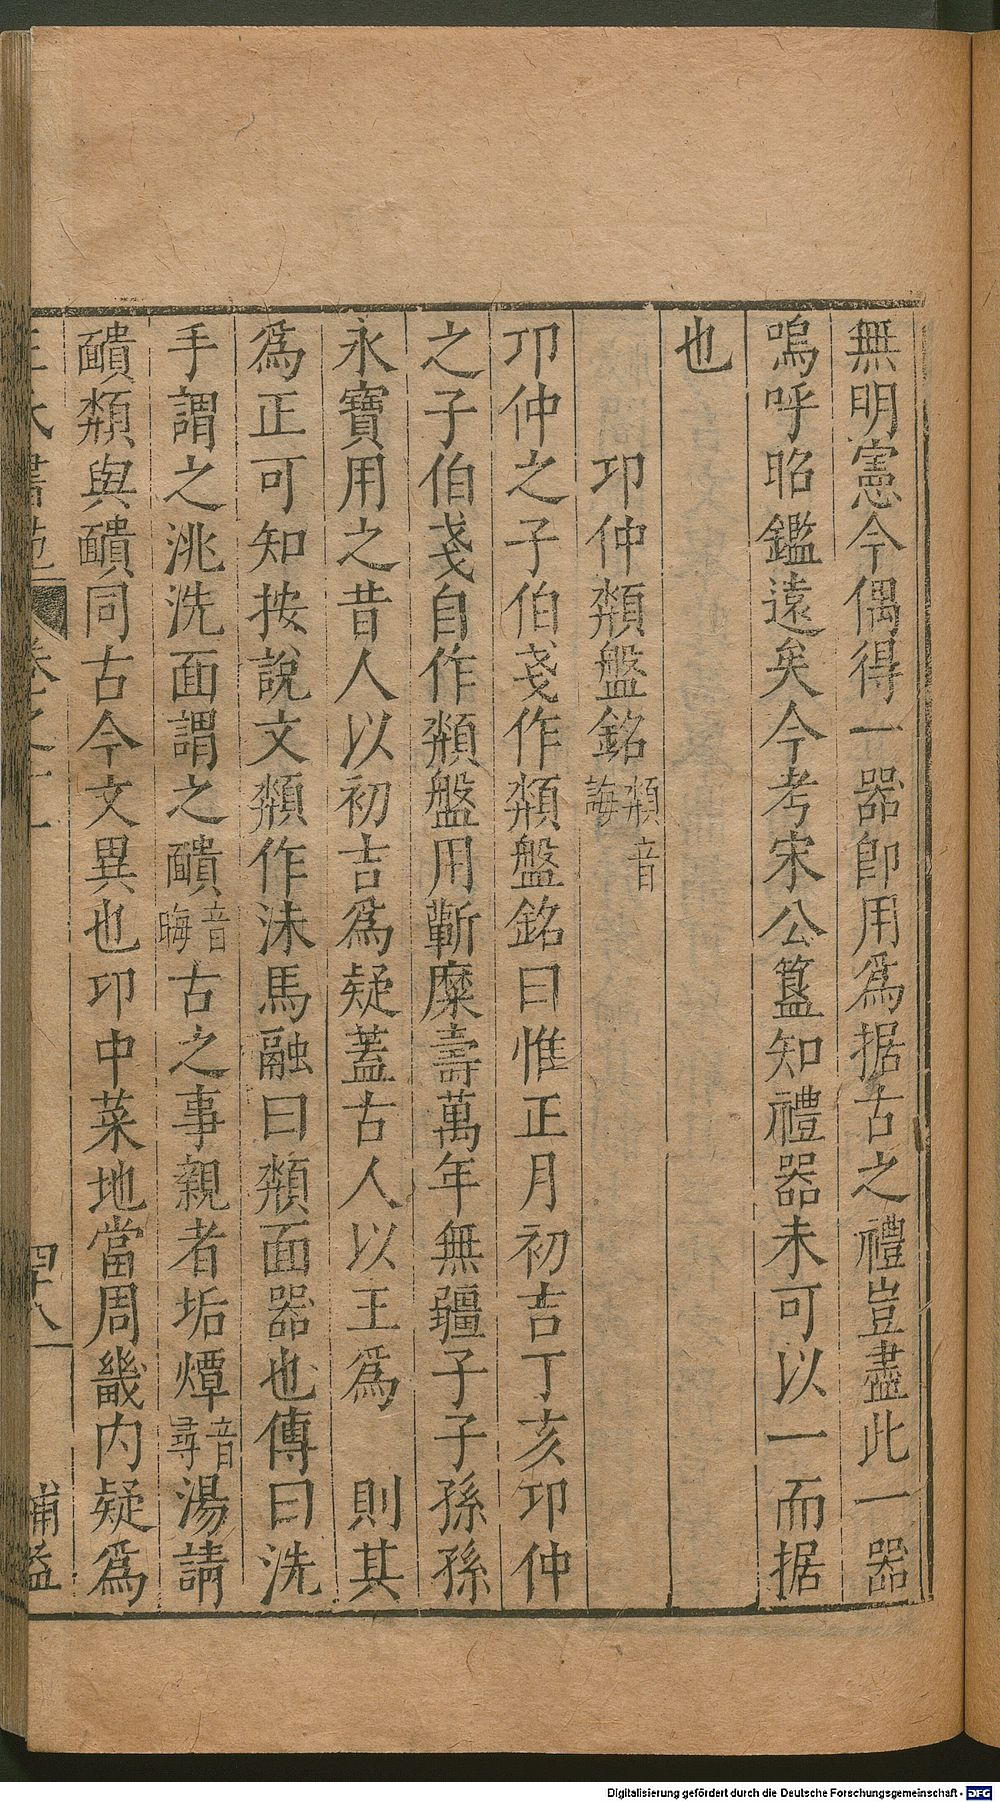 無明憲今偶得一器卽用爲据古之禮豈盡此一器
嗚呼昭鑑遠矣今考宋公簋知禮器未可以一而据
也
卭仲𩔁盤銘𩔁音誨
卭仲之子伯戔作𩔁盤銘曰惟正月初吉丁亥卭仲
之子伯戔自作𩔁盤用蘄糜壽萬年無疆子子孫孫
永寶用之昔人以初吉爲疑蓋古人以王爲　則其
爲正可知按說文𩔁作沬馬融曰𩔁面器也傳曰洗
手謂之洮洗面謂之靧音晦古之事親者垢燂音尋湯請
靧𩔁與靧同古今文異也卭中菜地當周畿内疑爲
卷之十一
四十八
補益
Digitalisierung gefördert durch die Deutsche Forschungsgemeinschaft - DFG